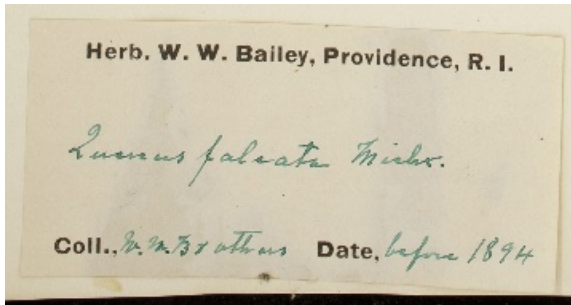 Herb. W. W. Bailey, Providence, R. I.
Quercus falcata Michx.
Coll., Date, before 1894